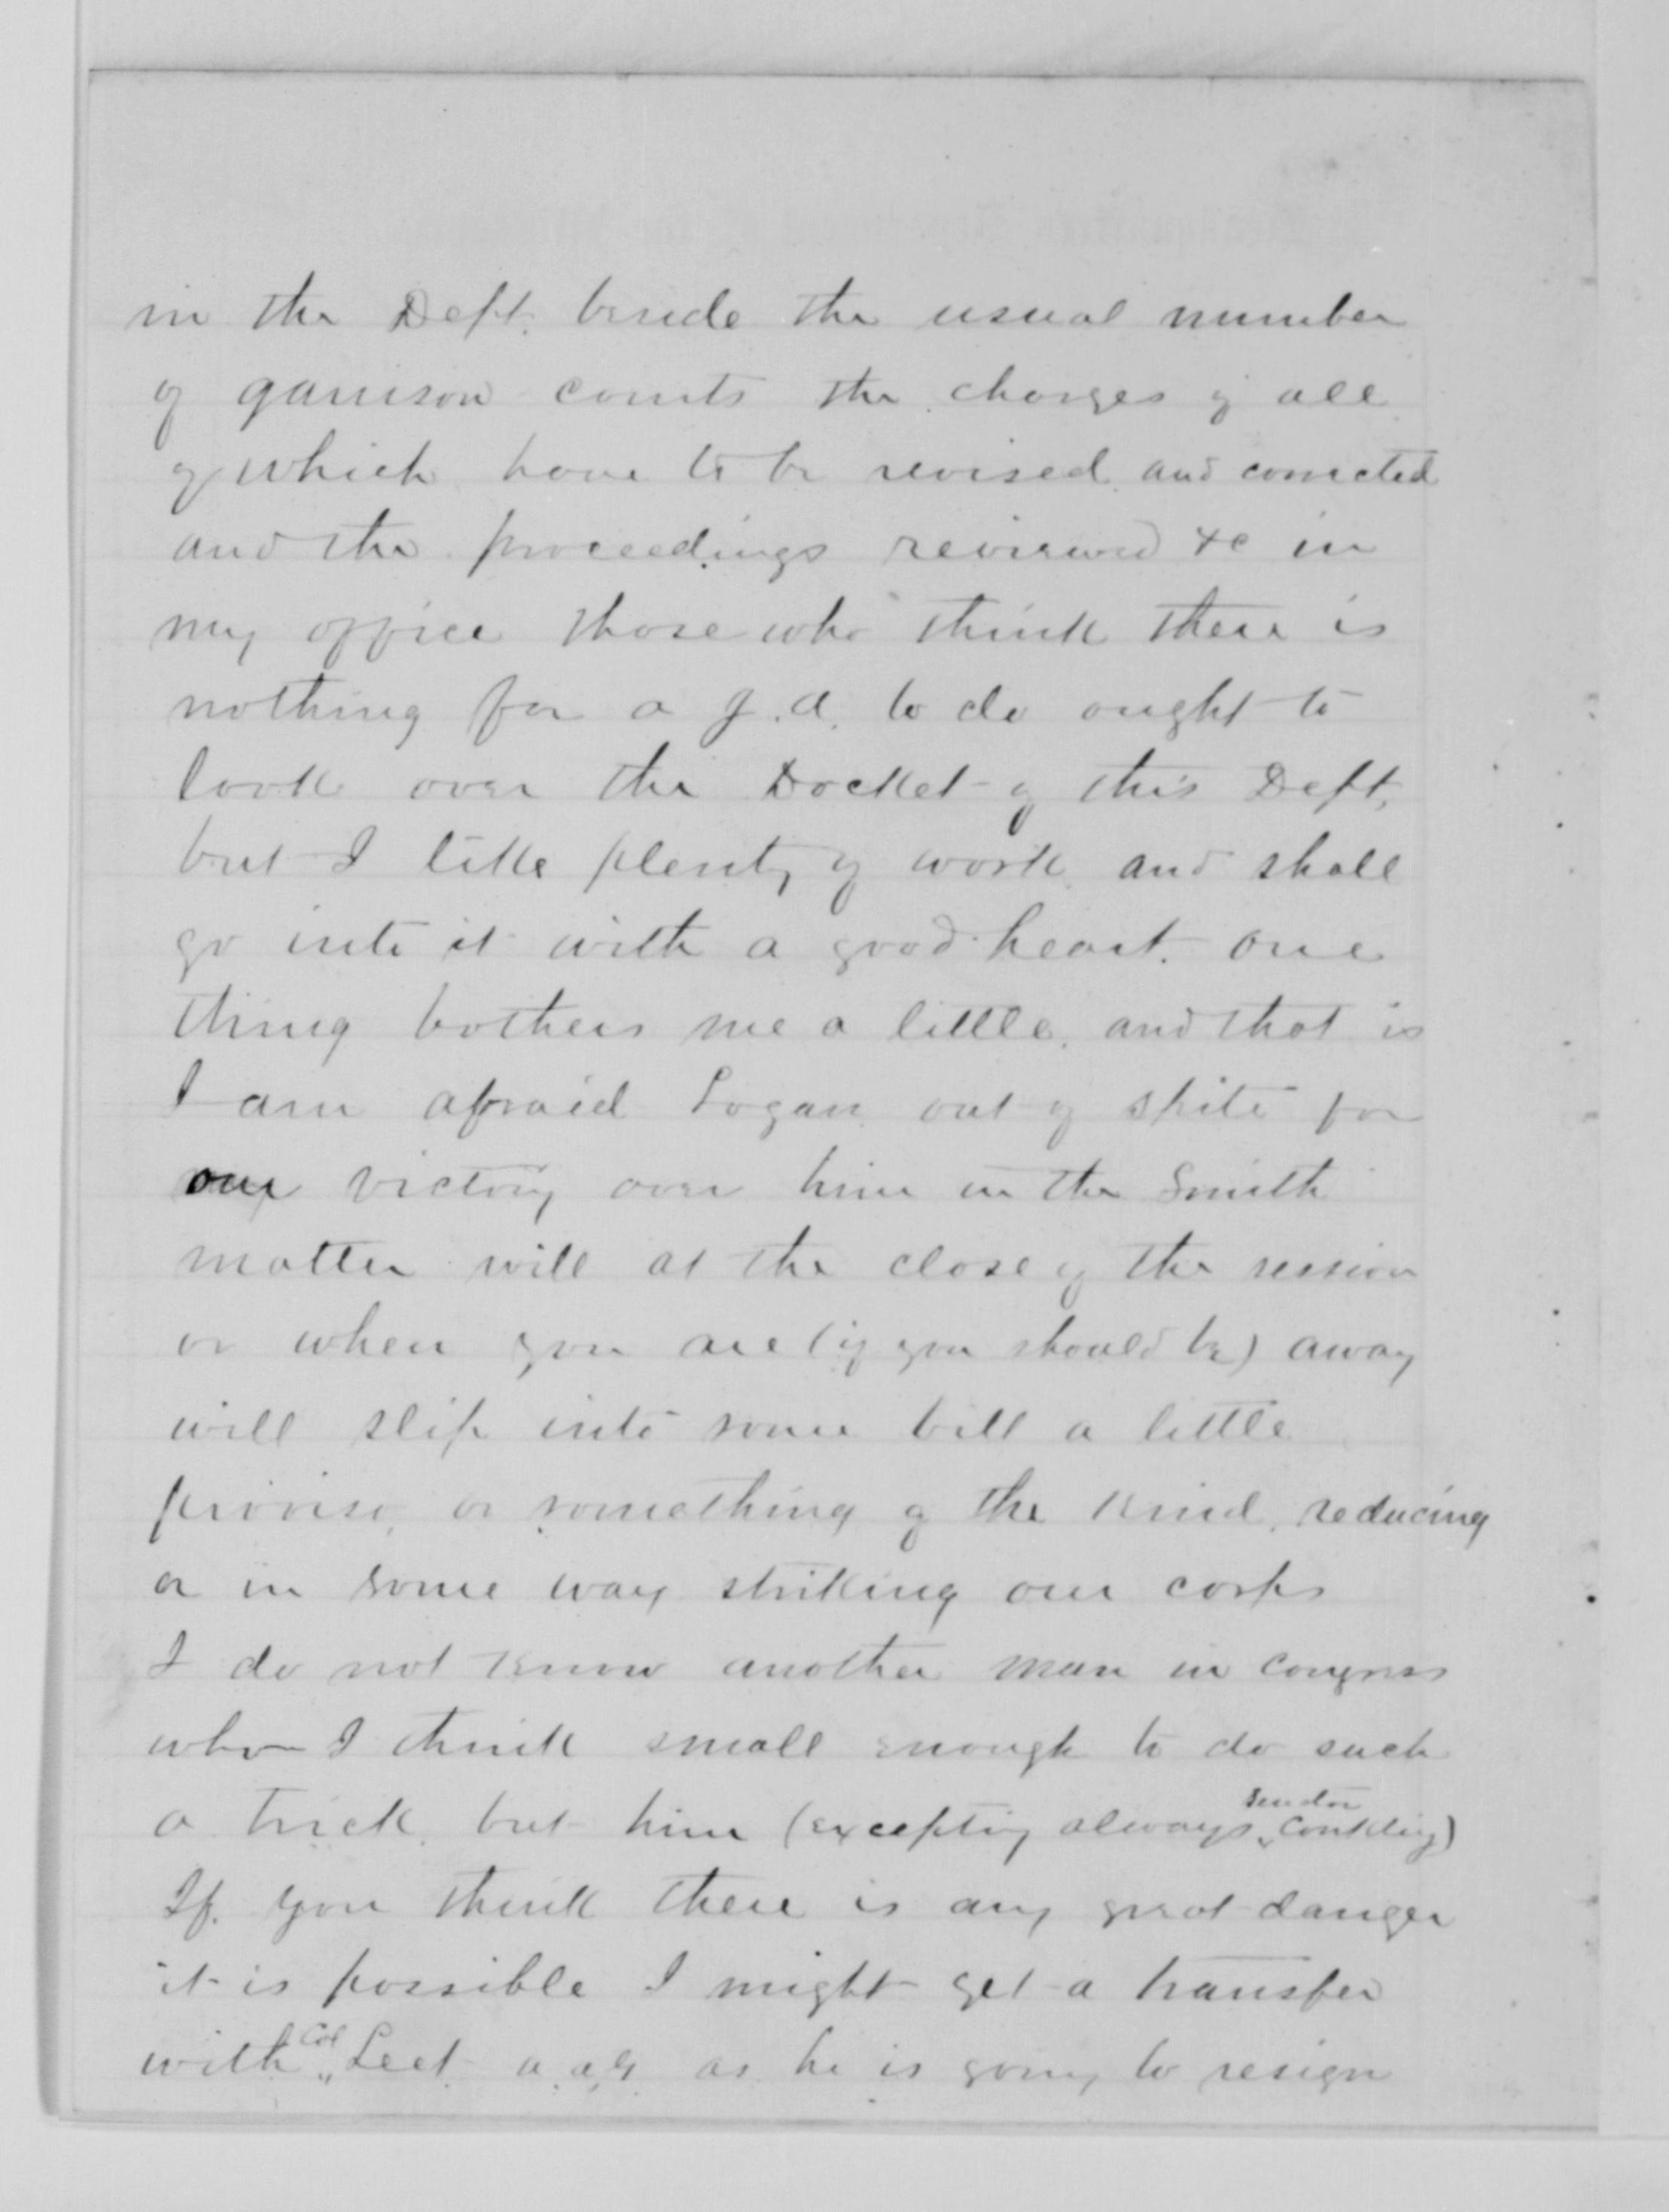 in the Dept. beside the usual number
of garrison courts the charges of all
of which have to be revised and corrected
and the proceedings reviewed &c in
my office those who think there is
nothing for a J.A. to do ought to
look over the Docket of this Dept,
but I like plenty of work and shall
go into it with a good heart. one
thing bothers me a little, and that is
I am afraid Logan out of spite for
our victory over him in the Smith
matter will at the close of the session
or when you are (if you should be) away
will slip into some bill a little
proviso, or something of the kind, reducing
or in some way striking our corps
I do not know another man in congress
who I think small enough to do such
a trick but him (excepting always Senator Conkling)
If you think there is any great danger
it is possible I might get a transfer
with Col Leet a.a.g as he is going to resign